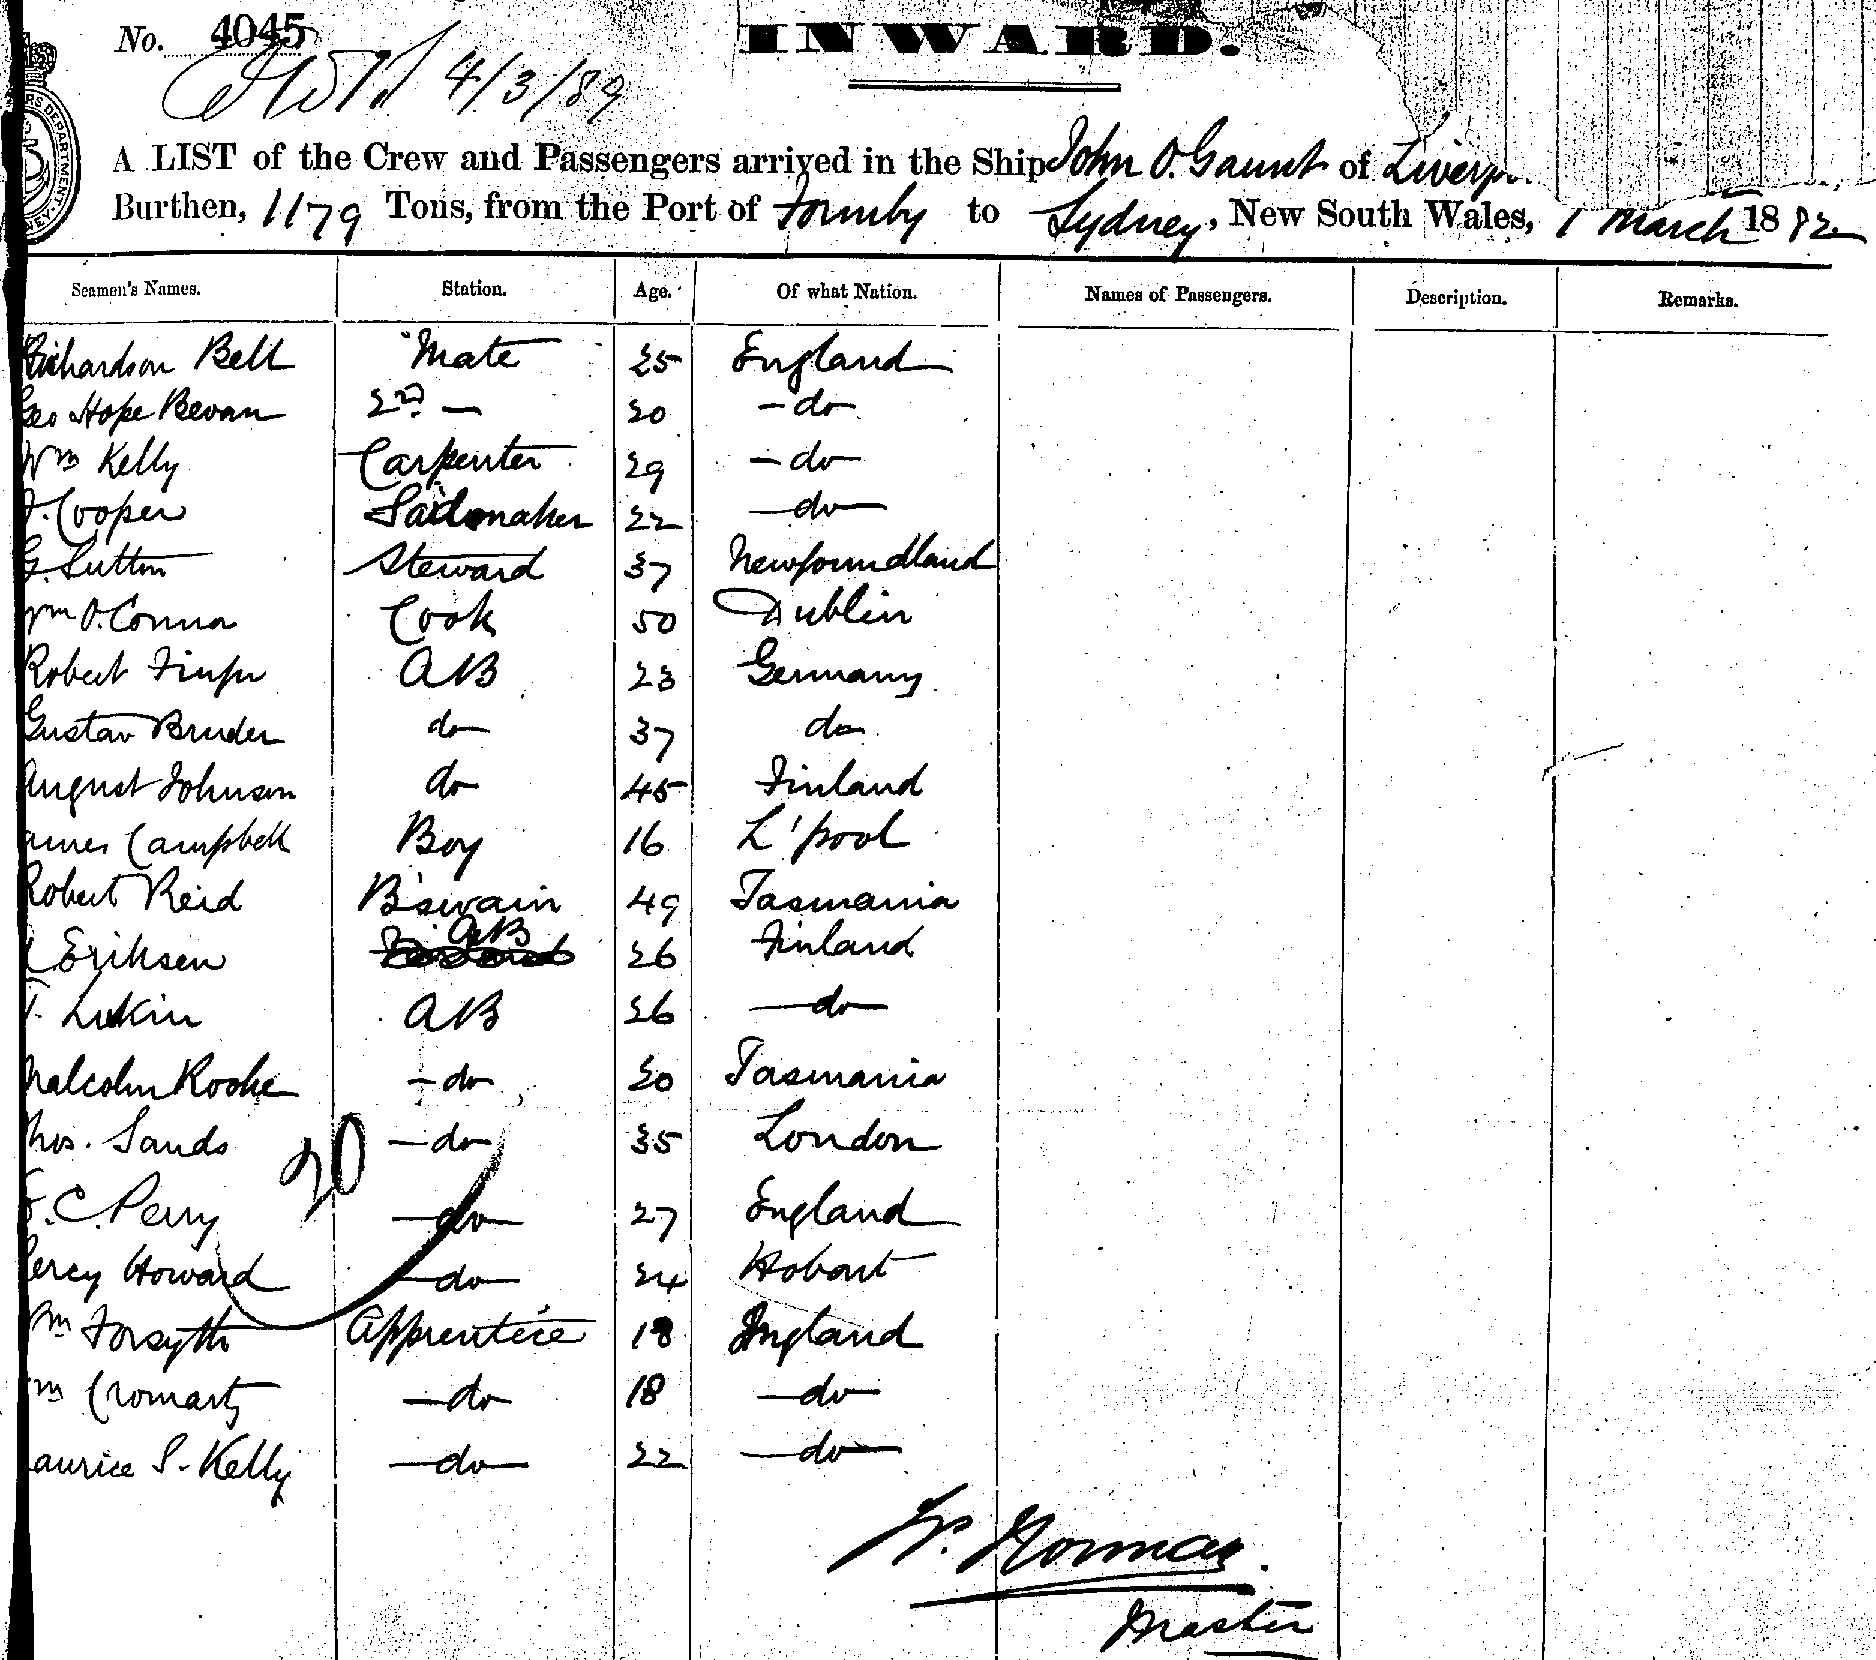 No. 4045
INWARD.
4/3/89
A LIST of the Crew and Passengers arrived in the Ship John O. Gaunt of Liverp
Burthen, 1179 Tons, from the Port of Formby to Sydney, New South Wales, 1 March 1882
Seamen's Names. Station. Age. Of what Nation. Names of Passengers. Description. Remarks.
Richardson Bell Mate 25 England
Geo Hope Bevan 2nd — 20 - do
Wm Kelly Carpenter 29 - do
J. Cooper Sailmaker 22 - do
G. Sutton Steward 37 Newfoundland
Wm O. Connor Cook 50 Dublin
Robert AB 23 Germany
Gustav Bruder do 37 do
August Johnson do 45 Finland
ames Campbell Boy 16 L'pool
Robert Reid B'swain 49 Tasmania
Eriksen AB 26 Finland
Lukin AB 26 - do
Malcolm Rooke - do 20 Tasmania
hos. Sands - do 35 London
20
C. Perry - do 27 England
Percy Howard - do 24 Hobart
Wm Forsyth Apprentice 18 England
m Cromarty - do 18 - do
aurice S. Kelly - do 22 - do
W. Norman
Master